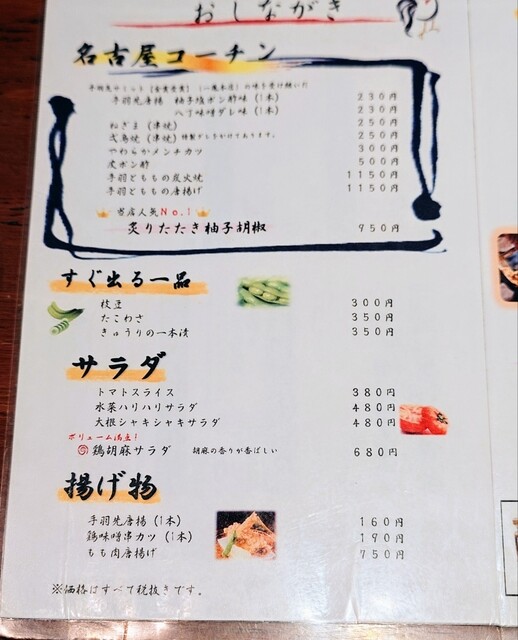 おしながき
名古屋コーチン
手羽先唐揚 柚子塩ポン酢味(1本) 230円
八丁味噌ダレ味(1本) 230円
ねぎま(串焼) 250円
弐鳥焼(串焼)特製ダレをかけております。 250円
やわらかメンチカツ 300円
皮ポン酢 500円
手羽どももの炭火焼 1150円
手羽どももの唐揚げ 1150円
当店人気No.1
炙りたたき柚子胡椒 950円
すぐ出る一品
枝豆 300円
たこわさ 350円
きゅうりの一本漬 350円
サラダ
トマトスライス 380円
水菜ハリハリサラダ 480円
大根シャキシャキサラダ 480円
ボリューム満点!
鶏胡麻サラダ 胡麻の香りが香ばしい 680円
揚げ物
手羽先唐揚(1本) 160円
鶏味噌串カツ(1本) 190円
もも肉唐揚げ 750円
※価格はすべて税抜きです。